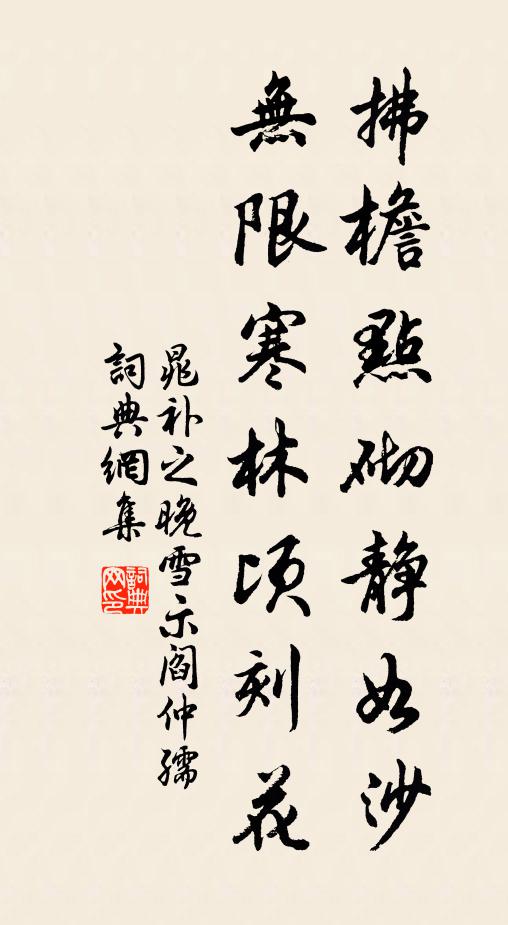 拂檐點砌静如沙
無限寒林頃刻花
晁补之晚雪示阎仲孺
詞典網集
詞典网印